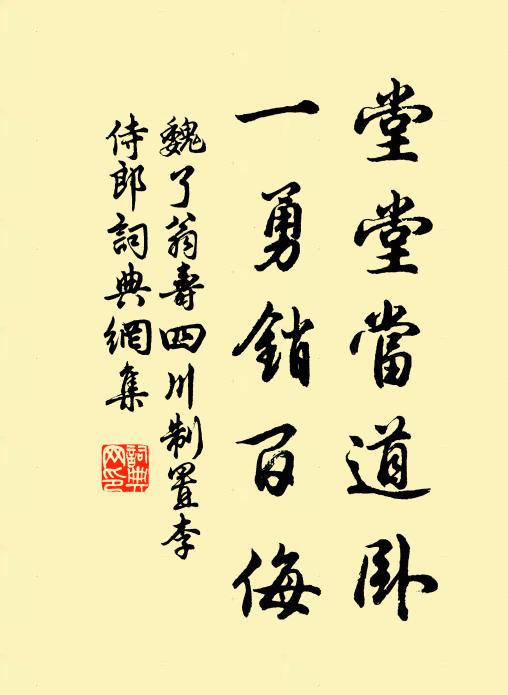 堂堂當道卧
一勇銷百侮
魏了翁壽四川制置李
侍郎詞典網集
詞典网印